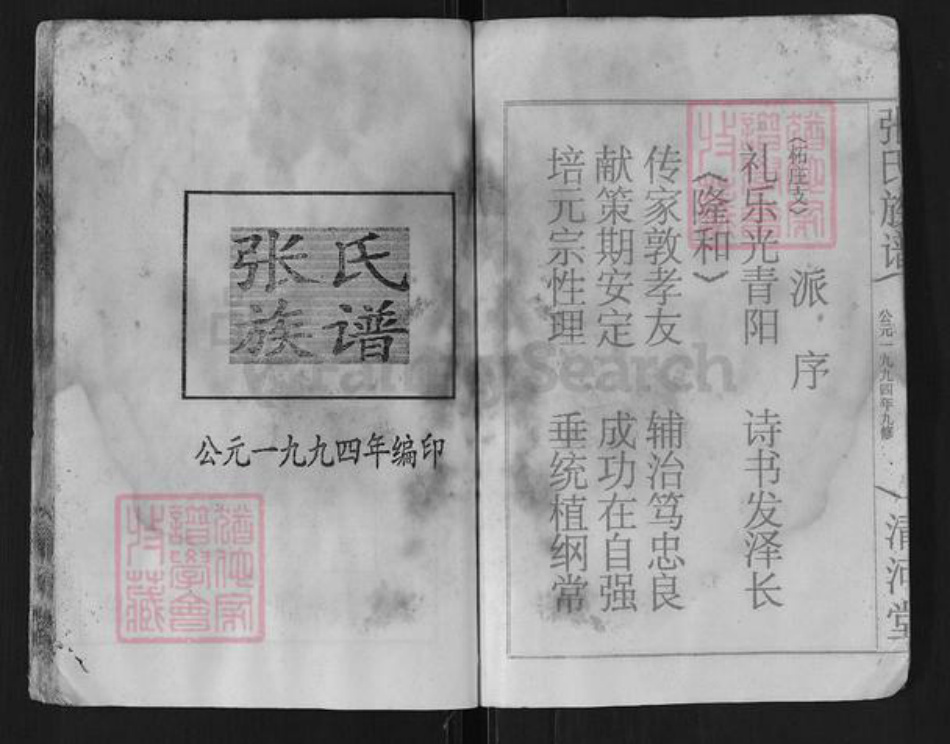 张氏
族谱
公元一九九四年编印
猶他家
譜學會
收藏
张氏族谱
公元一九九四年九修
清河堂
派序
礼乐光青阳 诗书发泽长
《隆和》
传家敦孝友 辅治笃忠良
献策期安定 成功在自强
培元宗性理 垂统植纲常
猶他家
譜學會
收藏
FamilySearch